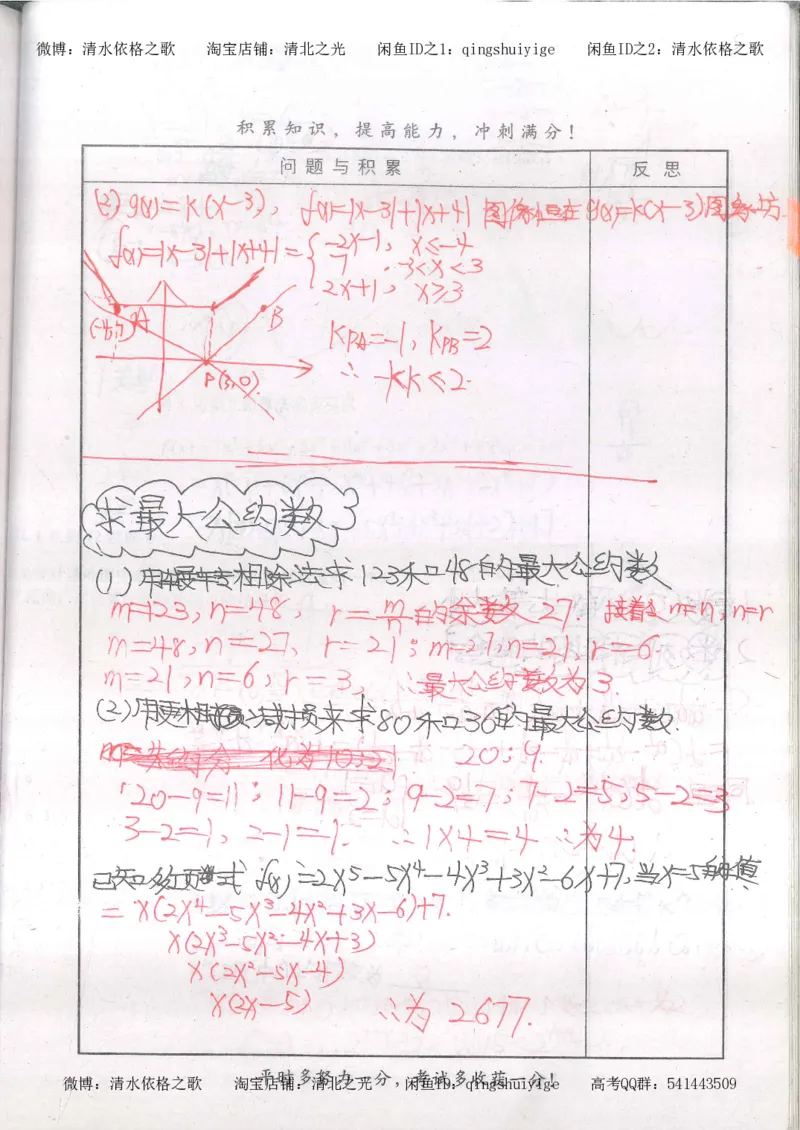 微博：清水依格之歌 淘宝店铺：清北之光 闲鱼ID之1：qingshuiyige 闲鱼ID之2：清水依格之歌
积累知识，提高能力，冲刺满分！
问题与积累 反思
(2) g(x)=k(x-3)， f(x)=|x-3|+|x+4| 图像恒在g(x)=k(x-3)图象上方.
f(x)=|x-3|+|x+4|= { -2x-1， x≤-4
7 ， -3<x<3
2x+1， x≥3
A B
(-4,7)
P(3,0)
K PA=-1，K PB=2
∴ -1<k≤2.
求最大公约数
(1) 用辗转相除法求123和48的最大公约数
m=123，n=48， r=m/n的余数 27. 接着 m=n，n=r
m=48，n=27， r=21；m=27，n=21，r=6
m=21，n=6，r=3， ∴最大公约数为3.
(2)用更相减损来求80和36的最大公约数.
20；9.
20-9=11；11-9=2；9-2=7；7-2=5；5-2=3
3-2=1，2-1=1. ∴1×4=4 ∴为4.
已知多项式f(x)=2x⁵-5x⁴-4x³+3x²-6x+7，当x=5的值
=x(2x⁴-5x³-4x²+3x-6)+7.
x(2x³-5x²-4x+3)
x(2x²-5x-4)
x(2x-5) ∴为2677.
平时多努力一分，考试多收获一分！
微博：清水依格之歌 淘宝店铺：清北之光 闲鱼ID：qingshuiyige 高考QQ群：541443509